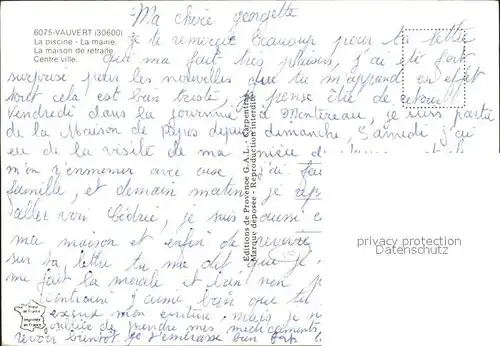 6075-VAUVERT (30600)
La piscine - La mairie.
La maison de retraite.
Centre ville.
Ma chère georgette
je te remercie beaucoup pour ta lettre
qui ma fait très plaisir, j'ai été fort
surprise pour les nouvelles que tu m'apprend en effet
tout cela est bien triste, je pense être de retour
vendredi dans la journée a Montereau, je suis partie
de la Maison de Repos depuis dimanche, Samedi j'ai
eu de la visite de ma
m'en emmener avec eux j'ai fai
famille, et demain matin je rep
aller voir Cédric, je suis aussi c
ma maison et enfin de revoir
sur ta lettre tu me dit que je
me fait la morale et bien non p
contraire j'aime bien que tu
excuse mon écriture, mais je n
oubliée de prendre mes médicaments,
revoir bientôt je t'embrasse bien fort
Editions de Provence G.A.L. - Carpentras
Marque déposée - Reproduction interdite
privacy protection
Datenschutz